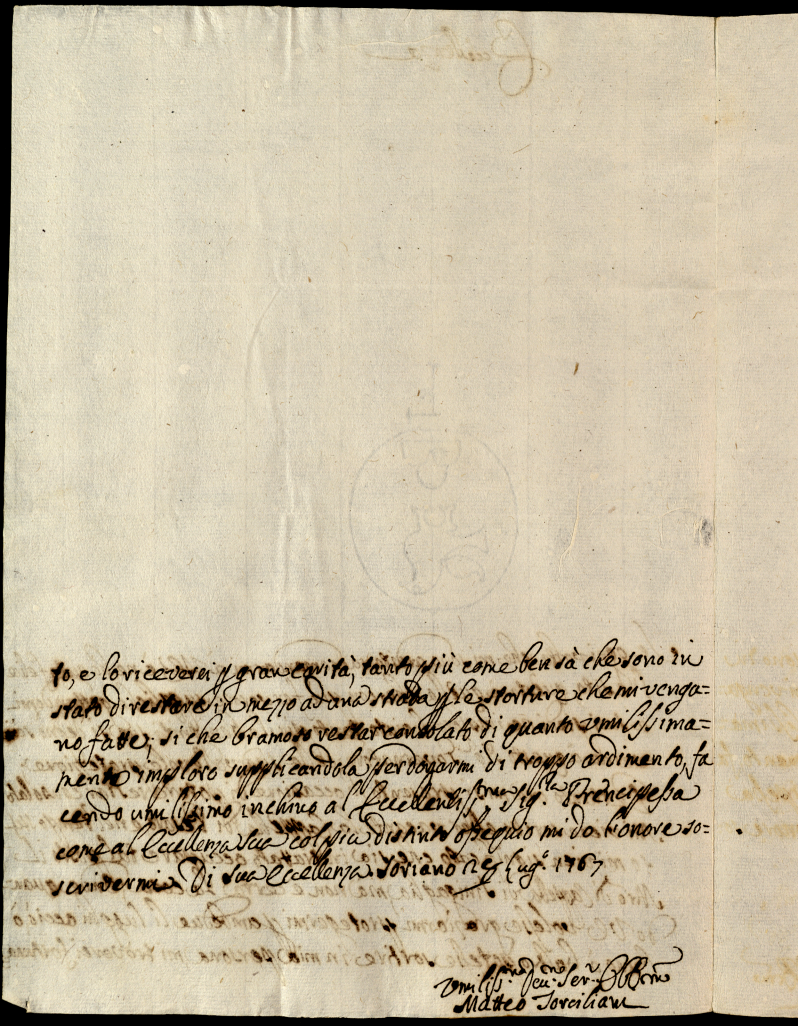 to, e lo riceverei p gran carità, tanto più come ben sà che sono in
stato di restare in mezzo ad una strada p le storture che mi venga=
no fatte; si che bramoso restar consolato di quanto umilissima=
mente imploro supplicandola perdonarmi di troppo ardimento, fa
cendo umilissimo inchino al Eccellentissma Sig.la Prencipessa
come al Eccellenza sua col più distinto ossequio mi do l'onore so=
scrivermi Di Sua Eccellenza. Soriano Lug.o 1767
Umiliss.mo Ser.
Matteo Torciliani